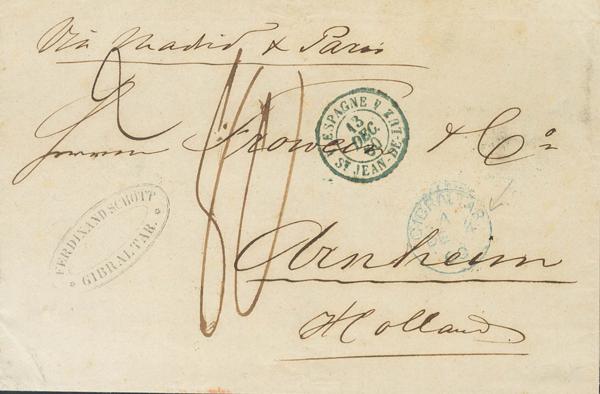 Via Madrid & Paris
2
Herren & Co
80
ESPAGNE ST JEAN-DE-LUZ
13
DEC.
FERDINAND SCHOTT
GIBRALTAR.
GIBRALTAR
A
DE
Arnheim
Holland.